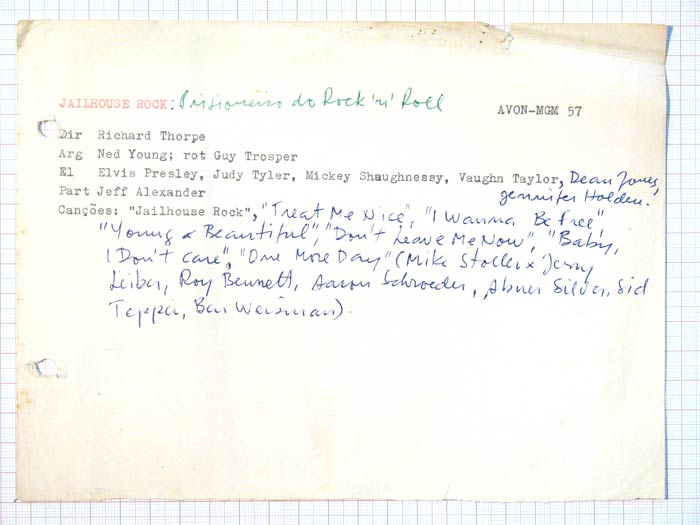 JAILHOUSE ROCK: Prisioneiro do Rock 'n' Roll AVON-MGM 57
Dir Richard Thorpe
Arg Ned Young; rot Guy Trosper
El Elvis Presley, Judy Tyler, Mickey Shaughnessy, Vaughn Taylor, Dean Jones,
Jennifer Holden.
Part Jeff Alexander
Canções: "Jailhouse Rock", "Treat Me Nice", "I Wanna Be Free",
"Young & Beautiful", "Don't Leave Me Now", "Baby,
I Don't care", "One More Day" (Mike Stoller x Jerry
Leiber, Roy Bennett, Aaron Schroeder, Abner Silver, Sid
Tepper, Ben Weisman).